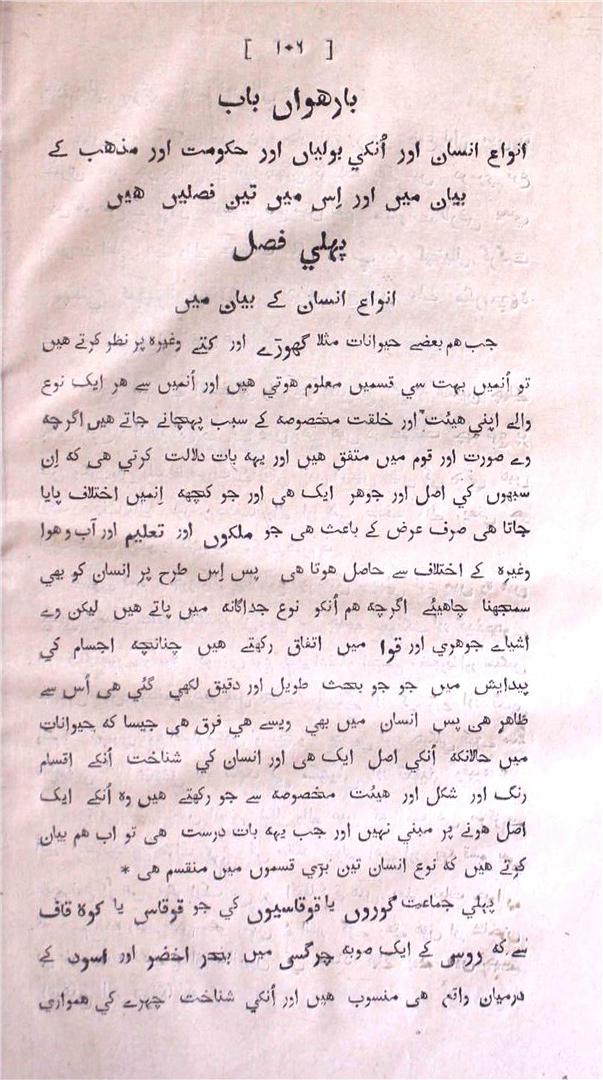 [ ۱۰۶ ]
بارھواں باب
انواع انسان اور اُنکي بولیاں اور حکومت اور مذھب کے
بیان میں اور اِس میں تین فصلیں ھیں
پہلي فصل
انواع انسان کے بیان میں
جب ھم بعضے حیوانات مثلا گھوڑے اور کتے وغیرہ پر نظر کرتے ھیں
تو اُنمیں بہت سي قسمیں معلوم ھوتي ھیں اور اُنمیں سے ھر ایک نوع
والے اپني ھیئت اور خلقت مخصوصہ کے سبب پہچانے جاتے ھیں اگرچہ
وے صورت اور قوم میں متفق ھیں اور یہہ بات دلالت کرتي ھی کہ اِن
سبھوں کي اصل اور جوھر ایک ھی اور جو کچھہ اِنمیں اختلاف پایا
جاتا ھی صرف عرض کے باعث ھی جو ملکوں اور تعلیم اور آب و ھوا
وغیرہ کے اختلاف سے حاصل ھوتا ھی پس اِس طرح پر انسان کو بھي
سمجھنا چاھیئے اگرچہ ھم اُنکو نوع جداگانہ میں پاتے ھیں لیکن وے
اشیاے جوھري اور قوا میں اتفاق رکھتے ھیں چنانچہ اجسام کي
پیدایش میں جو جو بحث طویل اور دقیق لکھي گئي ھی اُس سے
ظاھر ھی پس انسان میں بھي ویسے ھي فرق ھی جیسا کہ حیوانات
میں حالانکہ اُنکي اصل ایک ھی اور انسان کي شناخت اُنکے اقسام
رنگ اور شکل اور ھیئت مخصوصہ سے جو رکھتے ھیں وہ اُنکے ایک
اصل ھونے پر مبني نہیں اور جب یہہ بات درست ھی تو اب ھم بیان
کرتے ھیں کہ نوع انسان تین بڑي قسموں میں منقسم ھی *
پہلي جماعت گوروں یا قوقاسیوں کي جو قوقاس یا کوہ قاف
سے کہ روسی کے ایک صوبہ چرگسی میں بحر اخضر اور اسود کے
درمیان واقع ھی منسوب ھیں اور اُنکي شناخت چہرے کي ھمواري